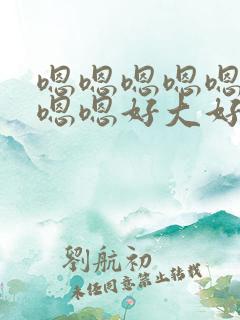 嗯嗯嗯嗯嗯
嗯嗯好大好
劉航初
未经同意禁止转载